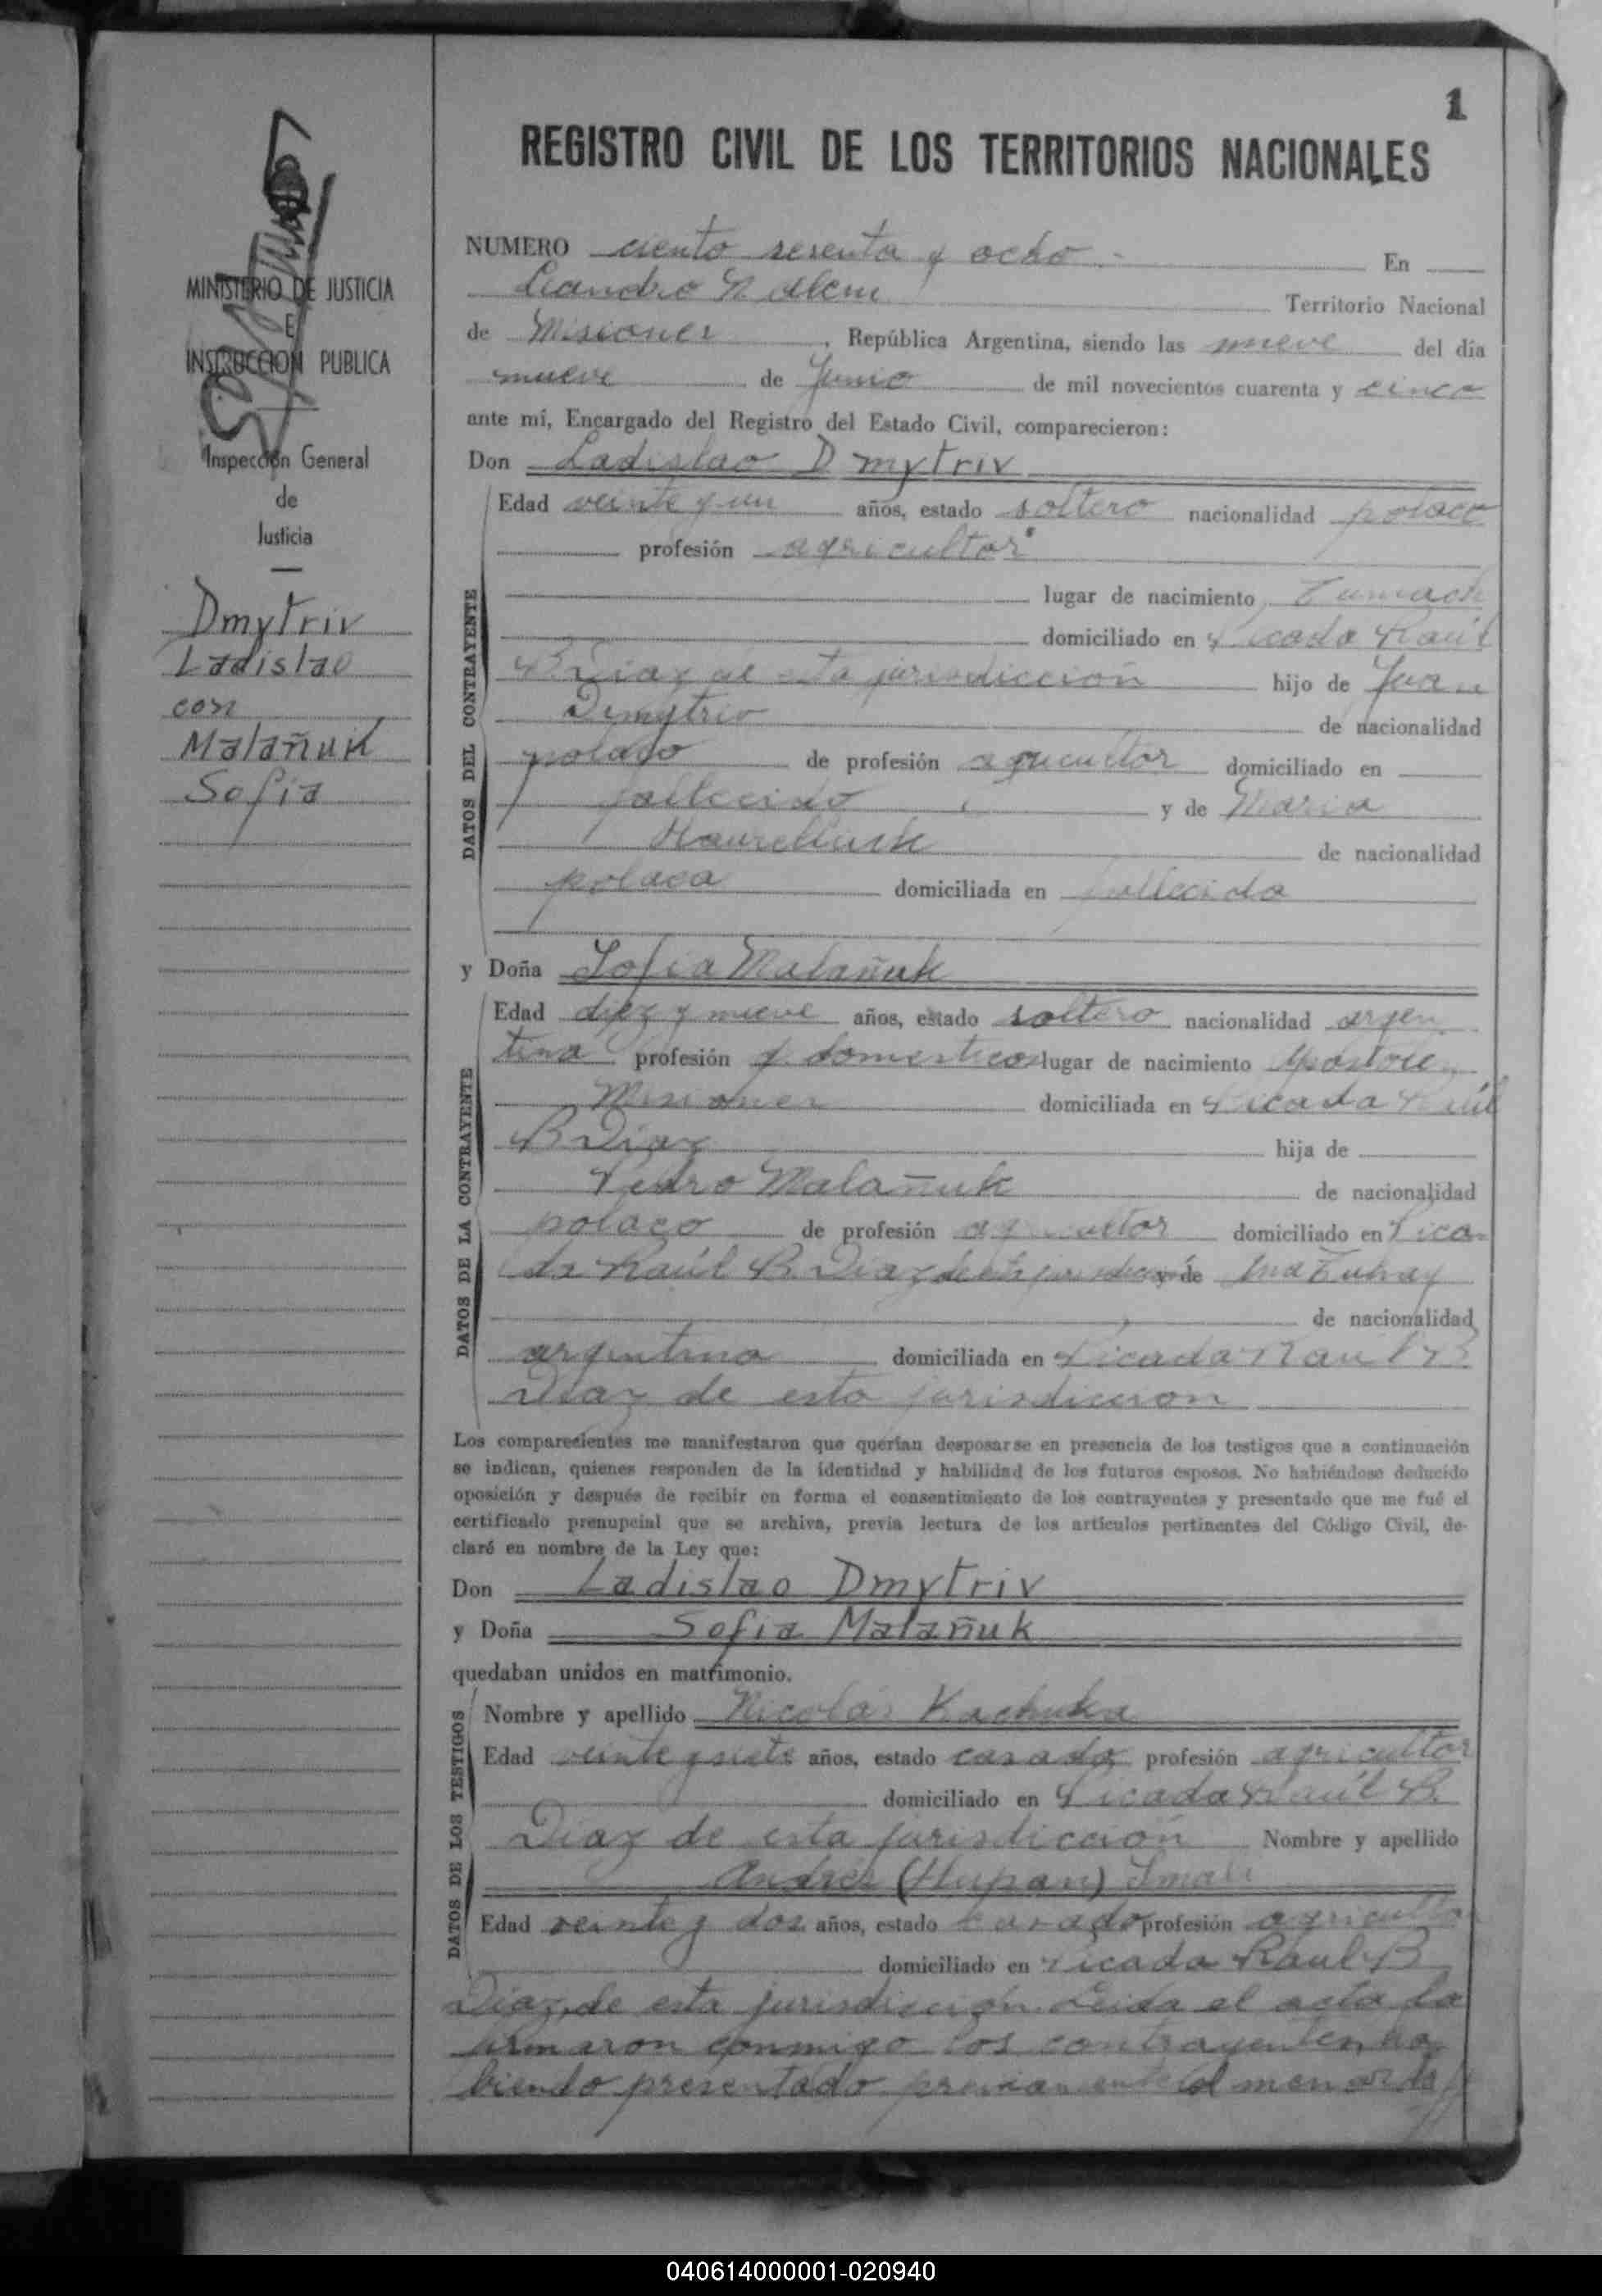 1
REGISTRO CIVIL DE LOS TERRITORIOS NACIONALES
MINISTERIO DE JUSTICIA
E
INSTRUCCION PUBLICA
Inspección General
de
Justicia
Dmytriv
Ladislao
con
Malañuk
Sofia
NUMERO ciento sesenta y ocho En
Leandro N Alem Territorio Nacional
de Misiones, República Argentina, siendo las nueve del día
nueve de Junio de mil novecientos cuarenta y cinco
ante mí, Encargado del Registro del Estado Civil, comparecieron:
Don Ladislao Dmytriv
DATOS DEL CONTRAYENTE
Edad veinte y un años, estado soltero nacionalidad polaco
profesión agricultor
lugar de nacimiento
domiciliado en Picada Raúl
B Diaz de esta jurisdicción hijo de Juan
Dmytriv de nacionalidad
polaco de profesión agricultor domiciliado en
fallecido y de Maria
de nacionalidad
polaca domiciliada en fallecida
y Doña Sofia Malañuk
DATOS DE LA CONTRAYENTE
Edad diez y nueve años, estado soltero nacionalidad argen
tina profesión q. domesticos lugar de nacimiento Apostoles
Misiones domiciliada en Picada Raúl
B Diaz hija de
Pedro Malañuk de nacionalidad
polaco de profesión agricultor domiciliado en Pica
da Raúl B. Diaz de esta jurisdicción y de Ana
de nacionalidad
argentina domiciliada en Picada Raúl B
Diaz de esta jurisdiccion
Los comparecientes me manifestaron que querían desposarse en presencia de los testigos que a continuación
se indican, quienes responden de la identidad y habilidad de los futuros esposos. No habiéndose deducido
oposición y después de recibir en forma el consentimiento de los contrayentes y presentado que me fué el
certificado prenupcial que se archiva, previa lectura de los artículos pertinentes del Código Civil, de-
claré en nombre de la Ley que:
Don Ladislao Dmytriv
y Doña Sofia Malañuk
quedaban unidos en matrimonio.
DATOS DE LOS TESTIGOS
Nombre y apellido Nicolás Kachuka
Edad veinte y siete años, estado casado profesión agricultor
domiciliado en Picada Raúl B.
Diaz de esta jurisdicción Nombre y apellido
Andrés (Hupan)
Edad veinte y dos años, estado casado profesión agricultor
domiciliado en Picada Raul B
Diaz, de esta jurisdicción. Leida el acta la
firmaron conmigo los contrayentes, ha
biendo presentado previamente el menor de
040614000001-020940